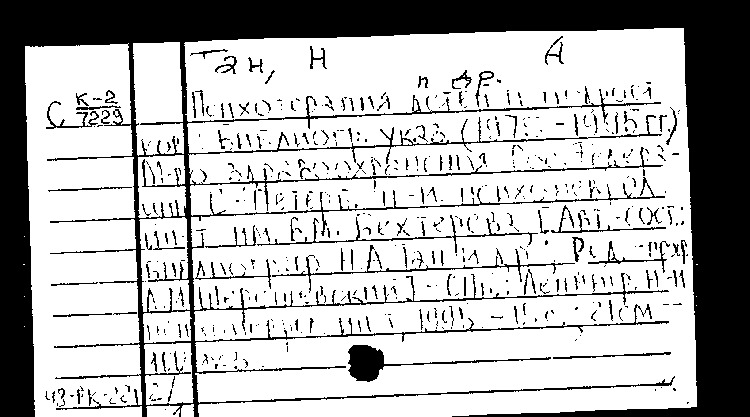 Тан, Н А
и др.
С К-2 Психотерапия детей и подрост
7229
ков: Библиогр. указ. (1975-1995 гг.)
М-во здравоохранения Рос. Федера-
ции, С.-Петерб. н-и. психоневрол.
ин-т им. В.М. Бехтерева, [Авт.-сост.:
библиограф Н.А. Тан и др.; Ред.
Л.И. Шерешевский] - СПб.: Ленингр. н-и
психоневрол. ин-т, 1995. с.; 21 см
100 экз.
43-РК-221 2/